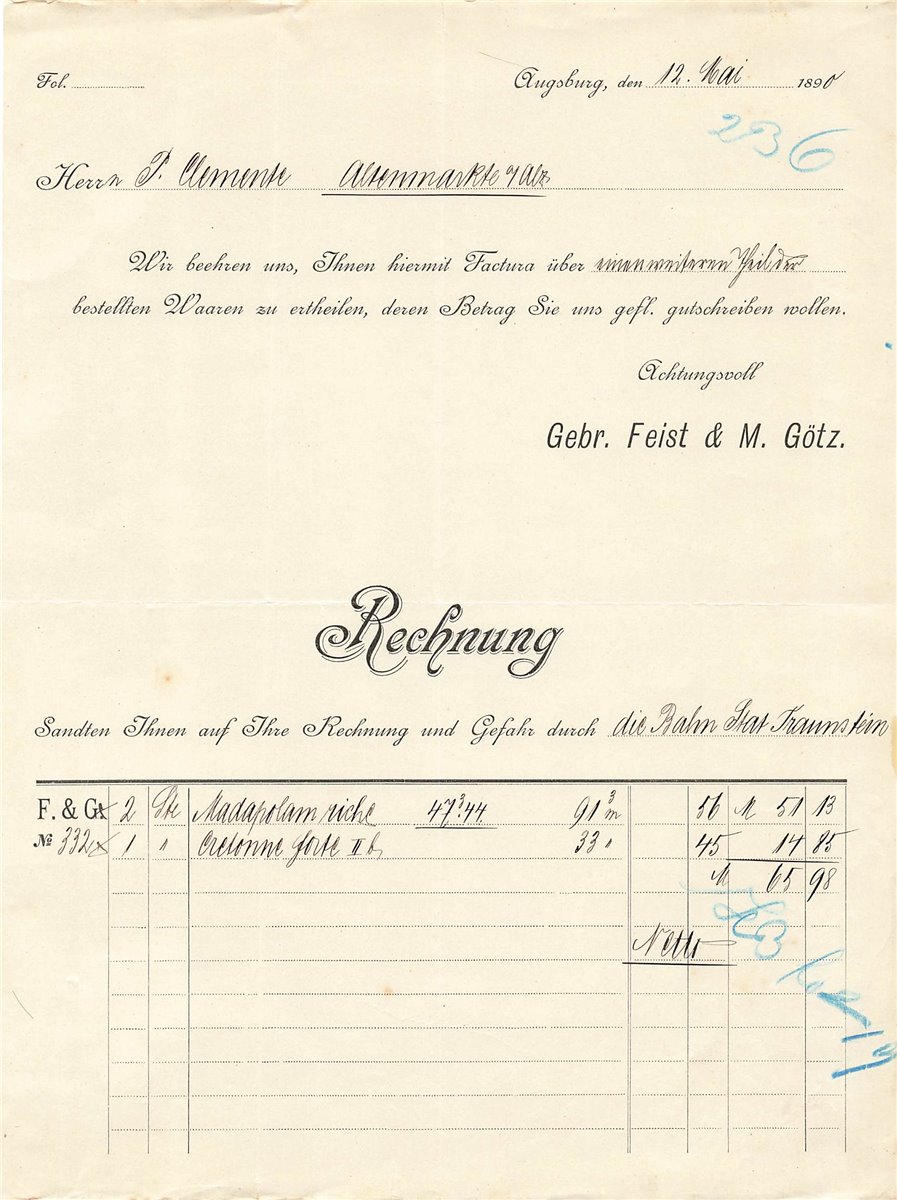 Fol.
Augsburg, den 12. Mai 1890
236
Herrn P. Clemente Altenmarkt a/Alz
Wir beehren uns, Ihnen hiermit Factura über einen weiteren Theil der
bestellten Waaren zu ertheilen, deren Betrag Sie uns gefl. gutschreiben wollen.
Achtungsvoll
Gebr. Feist & M. Götz.
Rechnung
Sandten Ihnen auf Ihre Rechnung und Gefahr durch die Bahn Stat Traunstein
F. & G. 2 Stk Madapolam riche 47³.44 91³ m 56 M 51 13
№ 332 1 " Cretonne forte II b 33 " 45 14 85
M 65 98
Netto